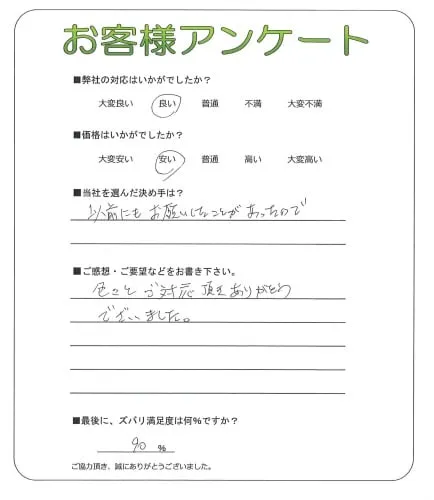 お客様アンケート
■弊社の対応はいかがでしたか？
大変良い 良い 普通 不満 大変不満
■価格はいかがでしたか？
大変安い 安い 普通 高い 大変高い
■当社を選んだ決め手は？
以前にもお願いしたことがあったので
■ご感想・ご要望などをお書き下さい。
色々とご対応頂きありがとう
ございました。
■最後に、ズバリ満足度は何%ですか？
90 %
ご協力頂き、誠にありがとうございました。